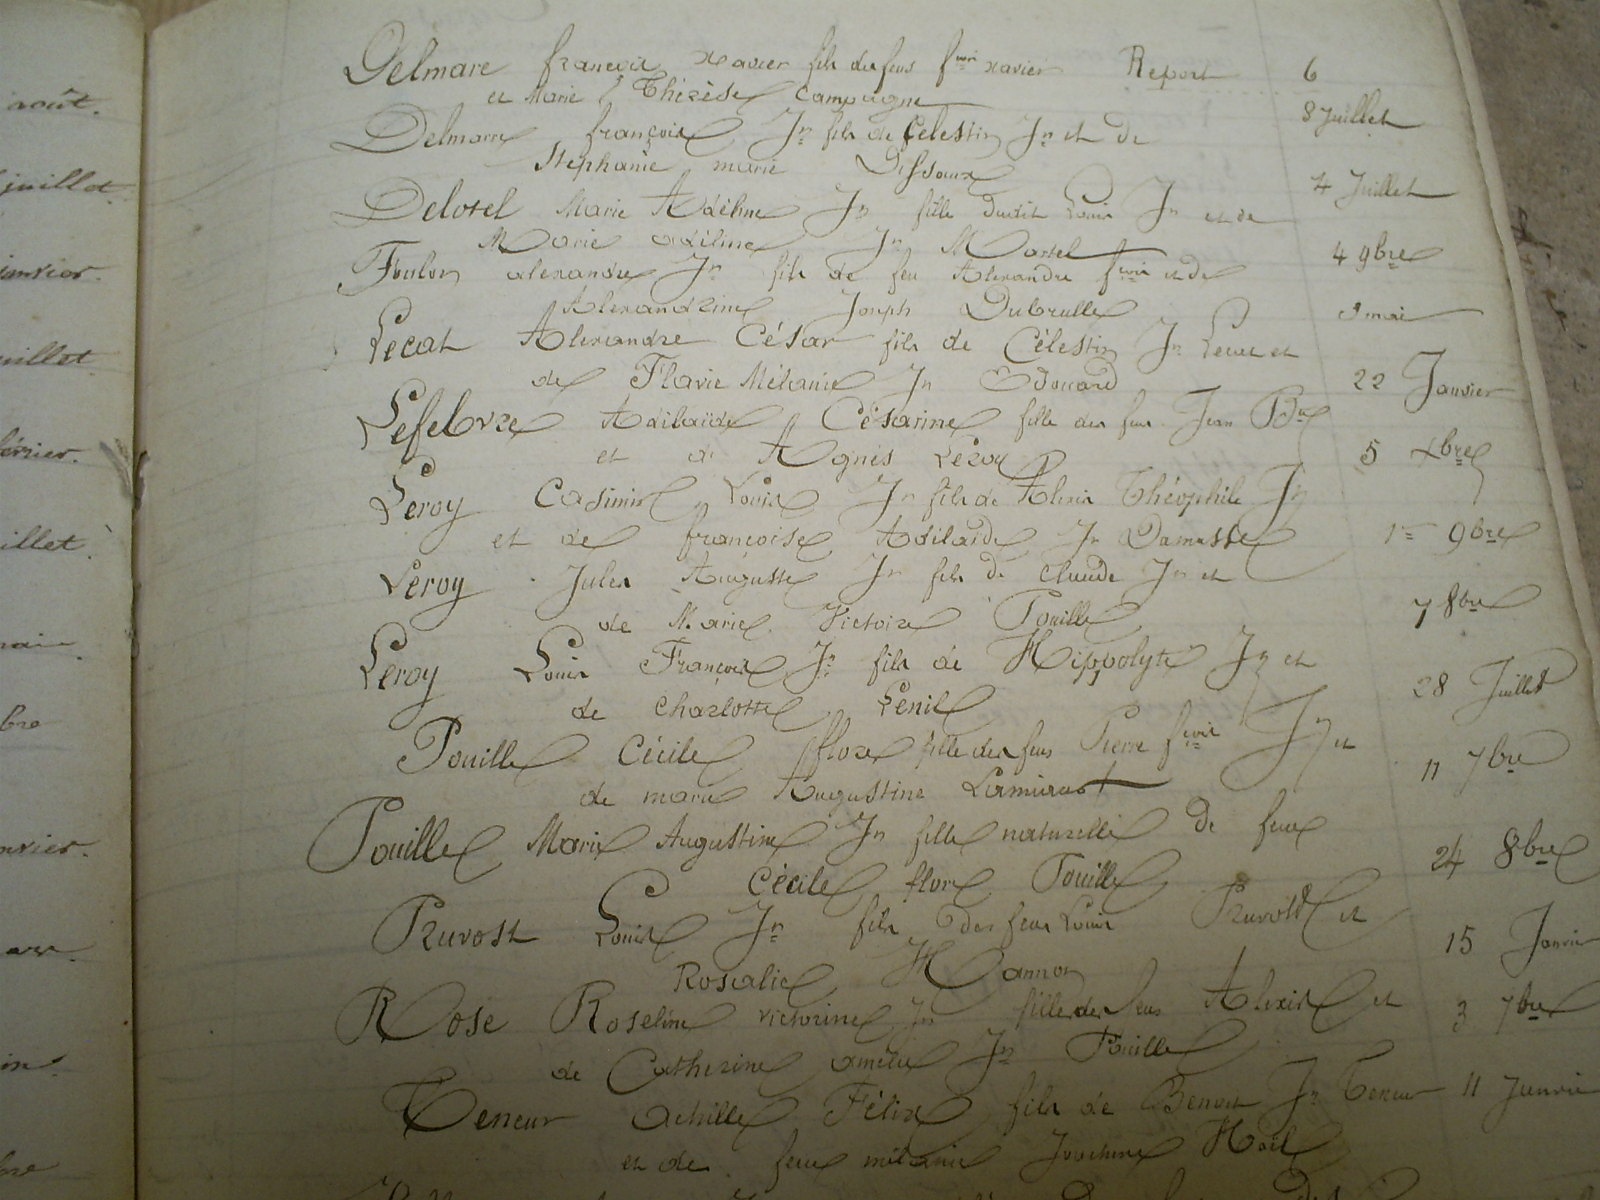 août.
juillet
janvier.
juillet
février.
juillet.
mai
bre
janvier.
bre
Delmare françois xavier fils des feus f.çois xavier Report 6
et Marie Thérèse Campagne
8 Juillet
Delmarre françois Jh fils de Célestin Jh et de
Stéphanie marie Dissaux
4 Juillet
Delosel Marie Adéline Jh fille dudit Louis Jh et de
Marie adéline Jh Martel
4 9bre
Foulon alexandre Jh fils de feu Alexandre f.çois et de
Alexandrine Joseph Dubrulle
8 mai
Lecat Alexandre César fils de Célestin Jh Lecat et
de Flavie Mélanie Jh Edouard
22 Janvier
Lefebvre Adélaïde Césarine fille des feus Jean Bte
et d' Agnès Leroy
5 xbre
Leroy Casimir Louis Jh fils de Alexis Théophile Jh
et de françoise Adélaïde Jh Damasse
1er 9bre
Leroy Jules Auguste Jh fils de claude Jh et
de Marie Victoire Pouille
7 8bre
Leroy Louis François Jh fils de Hippolyte Jh et
de Charlotte Lenil
28 Juillet
Pouille Cécile flore fille des feus Pierre f.çois Jh et
de marie Augustine Lamiraut
11 7bre
Pouille Marie Augustine Jh fille naturelle de feue
Cécile flore Pouille
24 8bre
Pruvost Louis Jh fils des feus Louis Pruvost et
Rosalie Hannon
15 Janvier
Rose Roseline victorine Jh fille des feus Alexis et
de Catherine amélie Jh Pouille
3 7bre
Teneur achille Félix fils de Benoit Jh Teneur 11 Janvier
et de feue mélanie Joachine Noël